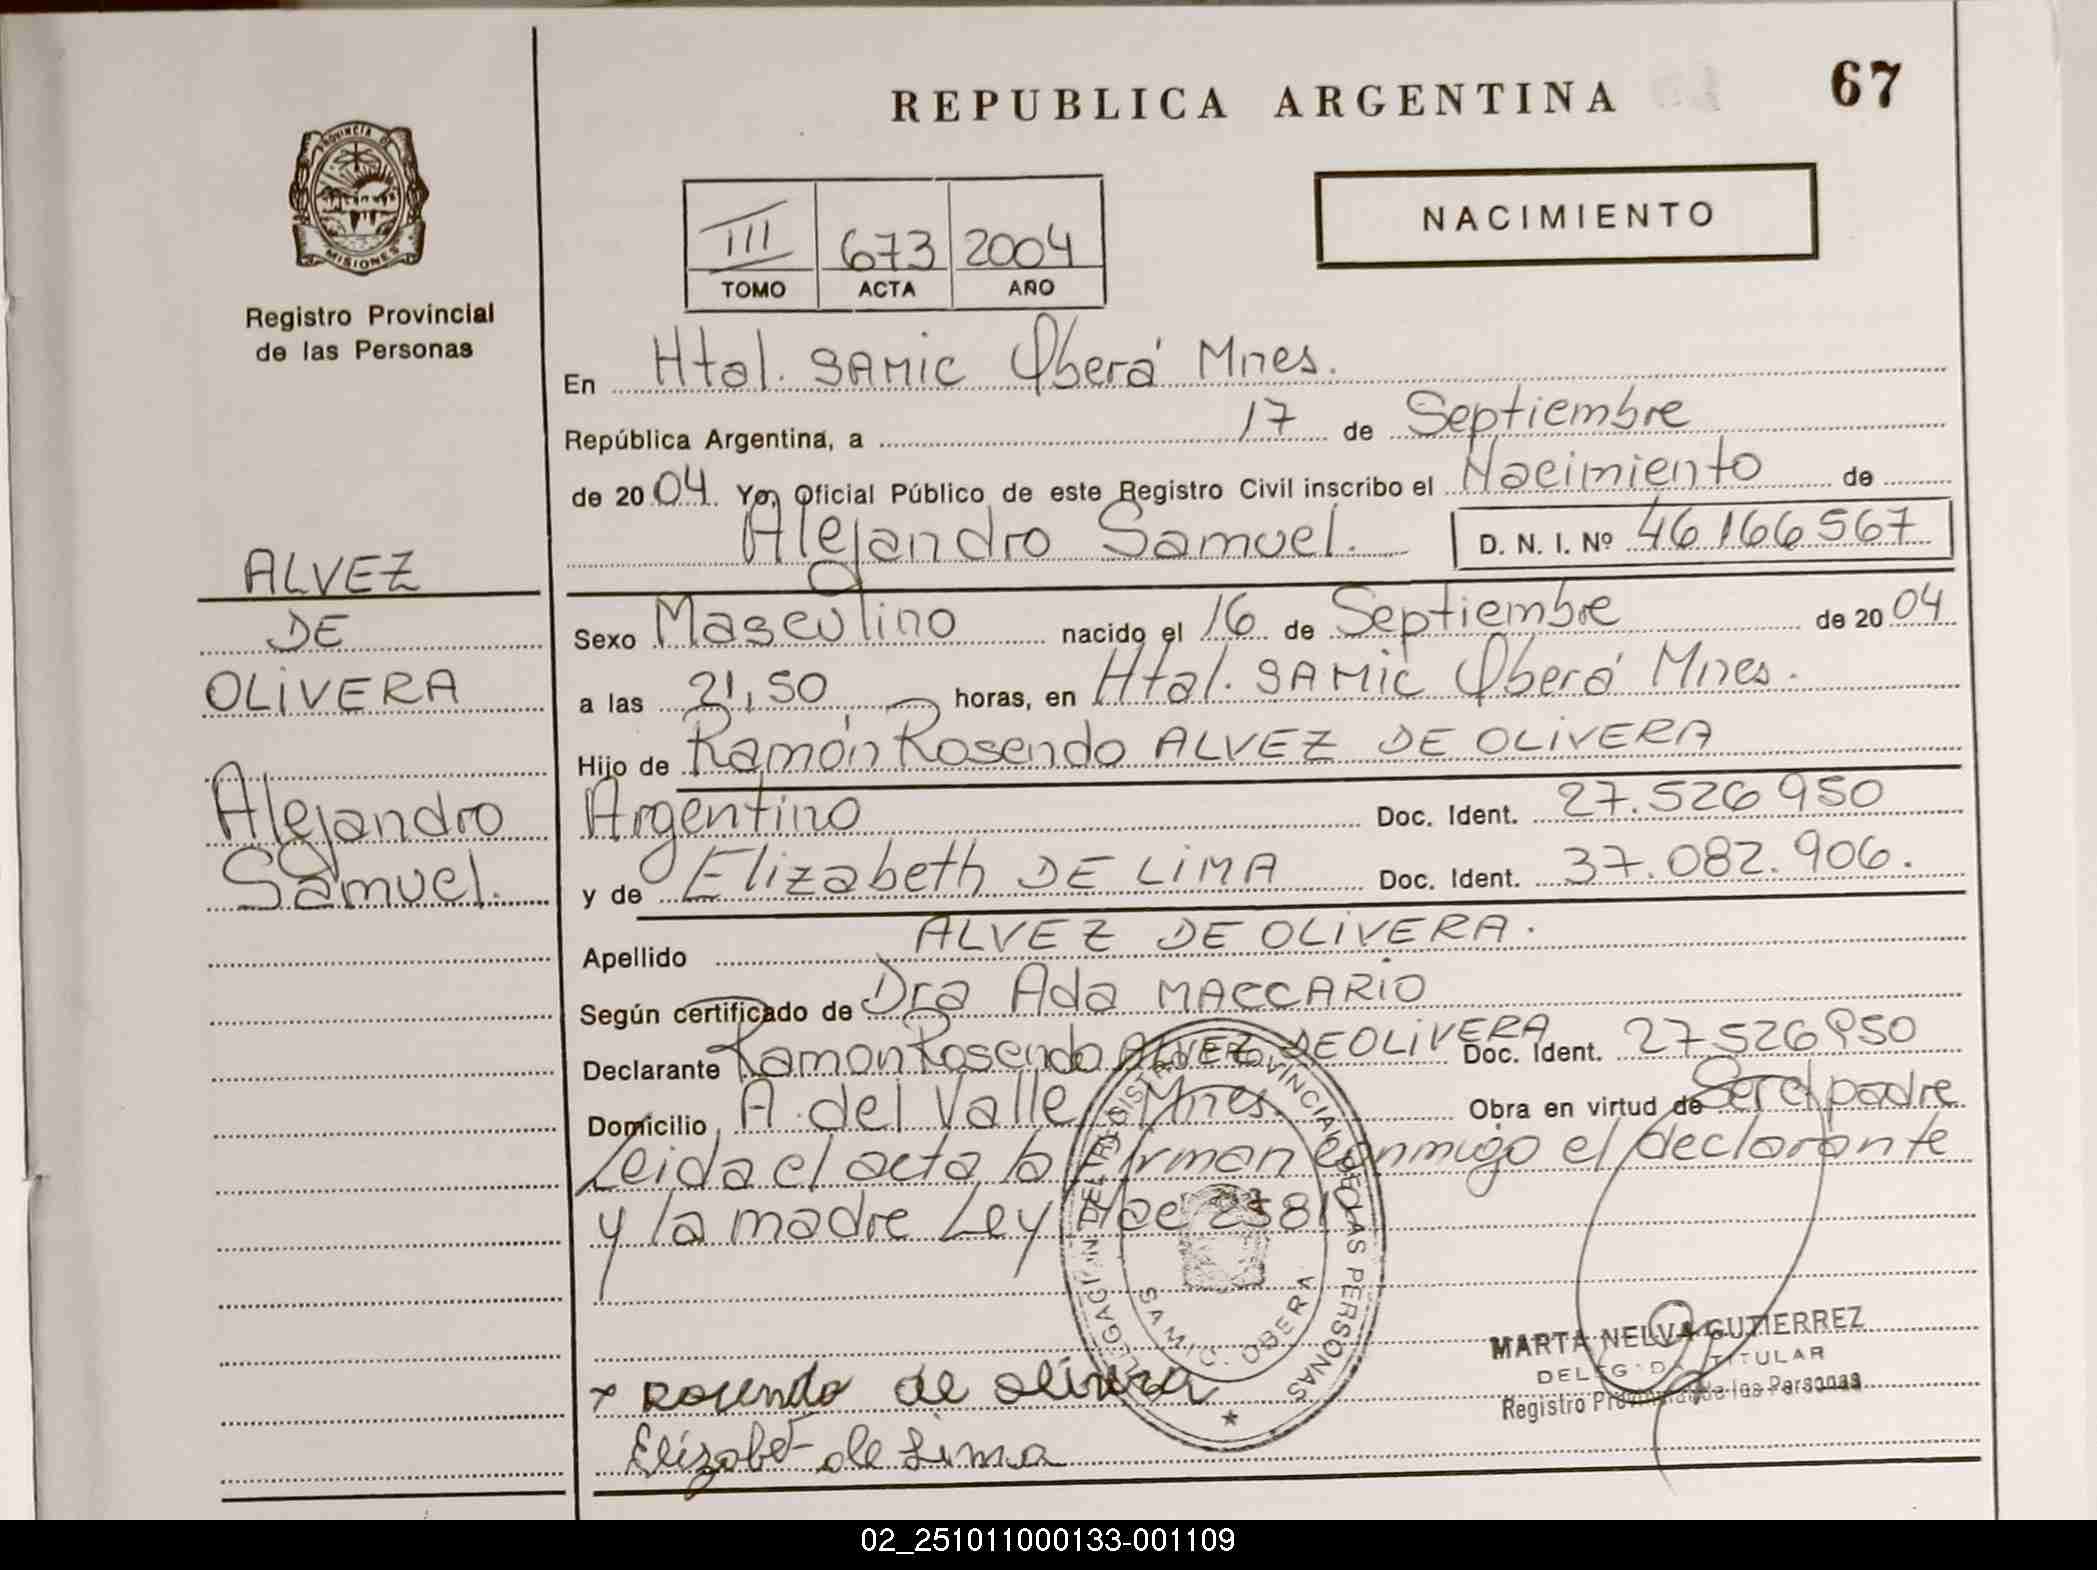 REPUBLICA ARGENTINA
67
PROVINCIA DE
MISIONES
Registro Provincial
de las Personas
III 673 2004
TOMO ACTA AÑO
NACIMIENTO
En Htal. SAMIC Oberá Mnes.
República Argentina, a 17 de Septiembre
de 2004. Yo, Oficial Público de este Registro Civil inscribo el Nacimiento de
Alejandro Samuel. D. N. I. Nº 46166567
ALVEZ
DE
OLIVERA
Alejandro
Samuel.
Sexo Masculino nacido el 16 de Septiembre de 2004
a las 21,50 horas, en Htal. SAMIC Oberá Mnes.
Hijo de Ramón Rosendo ALVEZ DE OLIVERA
Argentino Doc. Ident. 27.526950
y de Elizabeth DE LIMA Doc. Ident. 37.082.906.
Apellido ALVEZ DE OLIVERA.
Según certificado de Dra Ada MACCARIO
Declarante Ramon Rosendo ALVEZ DE OLIVERA Doc. Ident. 27526950
Domicilio A. del Valle Mnes. Obra en virtud de Ser el padre
Leida el acta la firman conmigo el declarante
y la madre Ley
DELEGACION DEL REGISTRO PROVINCIAL DE LAS PERSONAS
SAMIC. OBERA
MARTA NELVA GUTIERREZ
DELEGADA TITULAR
Registro Provincial de las Personas
x Rosendo de olivera
Elizabet de Lima
02_251011000133-001109